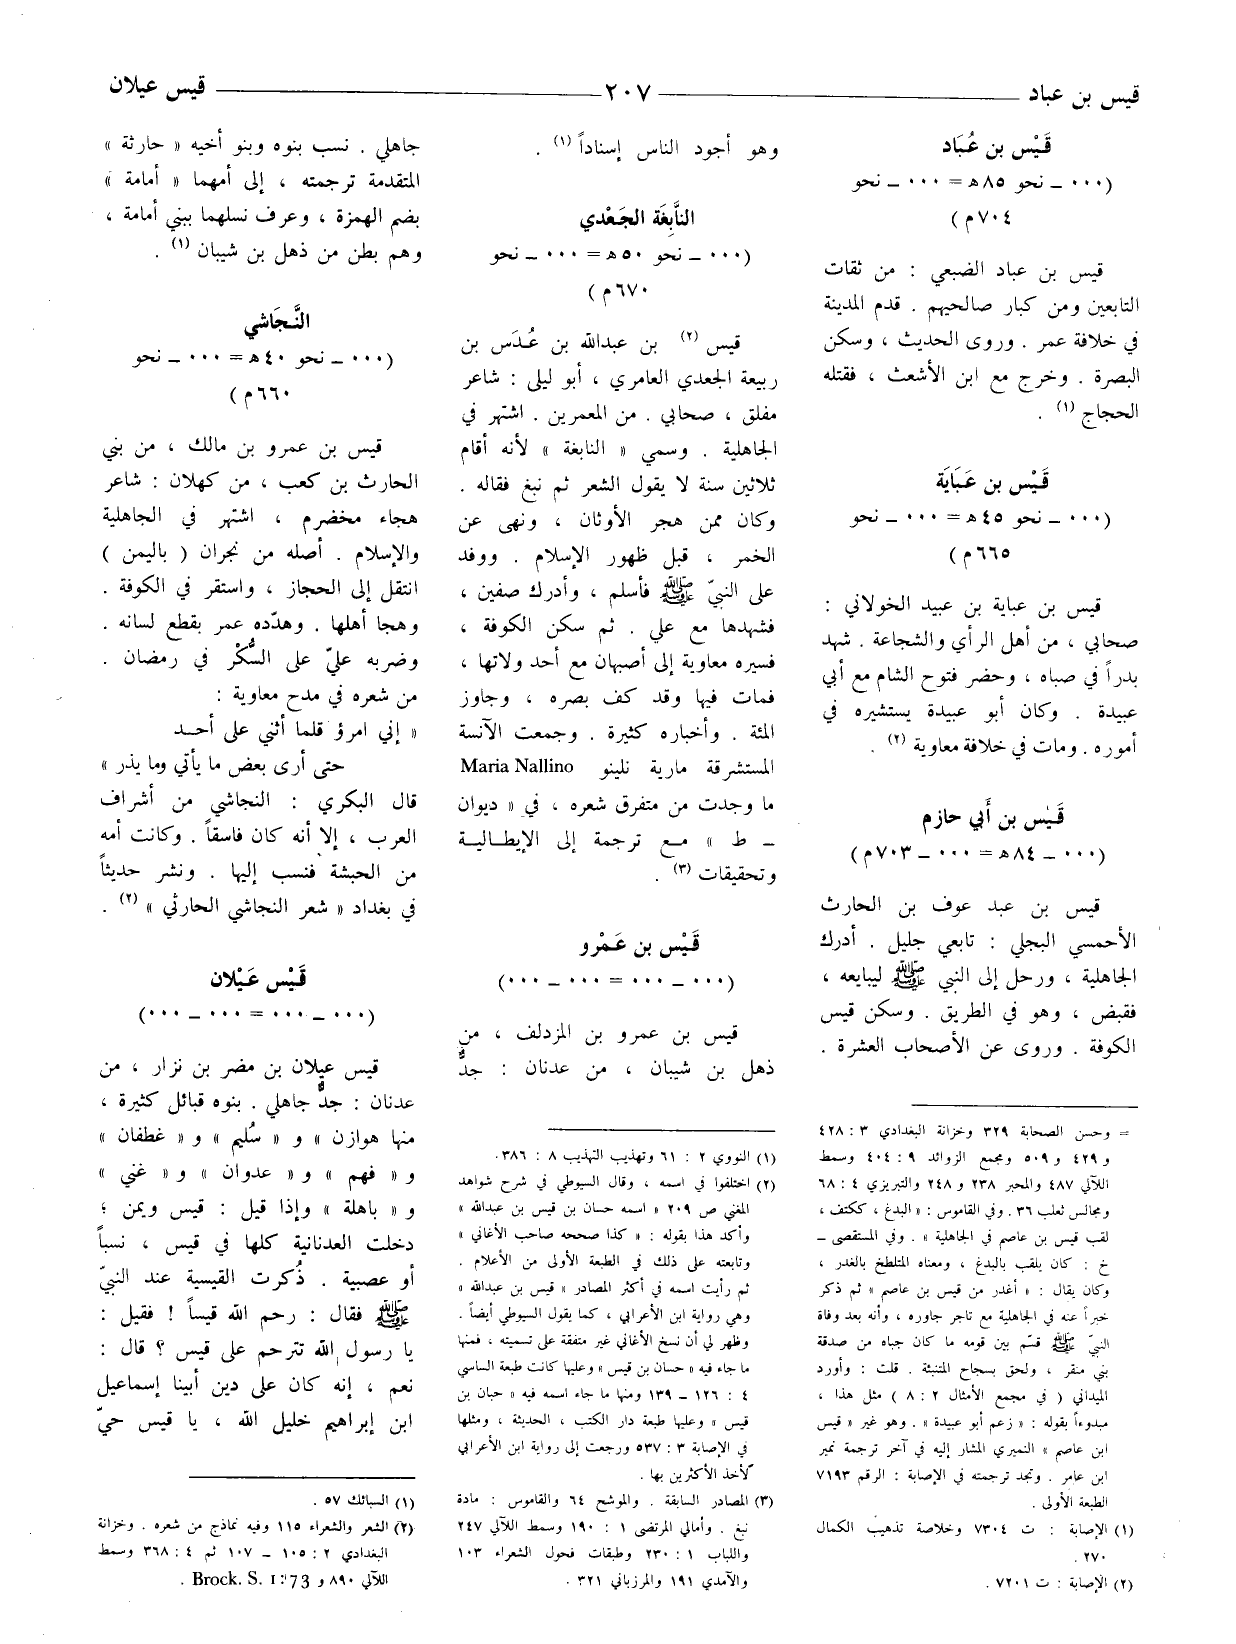 قيس بن عباد — ٢٠٧ — قيس عيلان
قَيْس بن عُبَاد
(٠٠٠ ـ نحو ٨٥ هـ = ٠٠٠ ـ نحو
٧٠٤م)
قيس بن عباد الضبعي : من ثقات
التابعين ومن كبار صالحيهم . قدم المدينة
في خلافة عمر . وروى الحديث ، وسكن
البصرة . وخرج مع ابن الأشعث ، فقتله
الحجاج (١) .
قَيْس بن عَبَايَة
(٠٠٠ ـ نحو ٤٥ هـ = ٠٠٠ ـ نحو
٦٦٥م)
قيس بن عباية بن عبيد الخولاني :
صحابي ، من أهل الرأي والشجاعة . شهد
بدراً في صباه ، وحضر فتوح الشام مع أبي
عبيدة . وكان أبو عبيدة يستشيره في
أموره . ومات في خلافة معاوية (٢) .
قَيْس بن أَبي حازم
(٠٠٠ ـ ٨٤ هـ = ٠٠٠ ـ ٧٠٣م)
قيس بن عبد عوف بن الحارث
الأحمسي البجلي : تابعي جليل . أدرك
الجاهلية ، ورحل إلى النبي ﷺ ليبايعه ،
فقبض ، وهو في الطريق . وسكن قيس
الكوفة . وروى عن الأصحاب العشرة .
= وحسن الصحابة ٣٢٩ وخزانة البغدادي ٣ : ٤٢٨
و ٤٢٩ و ٥٠٩ ومجمع الزوائد ٩ : ٤٠٤ وسمط
اللآلي ٤٨٧ والمحبر ٢٣٨ و ٢٤٨ والتبريزي ٤ : ٦٨
ومجالس ثعلب ٣٦ . وفي القاموس : « البدغ ، ككتف ،
لقب قيس بن عاصم في الجاهلية » . وفي المستقصى ـ
خ : كان يلقب بالبدغ ، ومعناه المتلطخ بالغدر ،
وكان يقال : « أغدر من قيس بن عاصم » ثم ذكر
خبراً عنه في الجاهلية مع تاجر جاوره ، وأنه بعد وفاة
النبيّ ﷺ قسّم بين قومه ما كان جباه من صدقة
بني منقر ، ولحق بسجاح المتنبئة . قلت : وأورد
الميداني ( في مجمع الأمثال ٢ : ٨ ) مثل هذا ،
مبدوءاً بقوله : « زعم أبو عبيدة » . وهو غير « قيس
ابن عاصم » النميري المشار إليه في آخر ترجمة نمير
ابن عامر . وتجد ترجمته في الإصابة : الرقم ٧١٩٣
الطبعة الأولى .
(١) الإصابة : ت ٧٣٠٤ وخلاصة تذهيب الكمال
٢٧٠ .
(٢) الإصابة : ت ٧٢٠١ .
وهو أجود الناس إسناداً (١) .
النَّابِغَة الجَعْدي
(٠٠٠ ـ نحو ٥٠ هـ = ٠٠٠ ـ نحو
٦٧٠م)
قيس (٢) بن عبدالله بن عُدَس بن
ربيعة الجعدي العامري ، أبو ليلى : شاعر
مفلق ، صحابي . من المعمرين . اشتهر في
الجاهلية . وسمي « النابغة » لأنه أقام
ثلاثين سنة لا يقول الشعر ثم نبغ فقاله .
وكان ممن هجر الأوثان ، ونهى عن
الخمر ، قبل ظهور الإسلام . ووفد
على النبيّ ﷺ فأسلم ، وأدرك صفين ،
فشهدها مع علي . ثم سكن الكوفة ،
فسيره معاوية إلى أصبهان مع أحد ولاتها ،
فمات فيها وقد كف بصره ، وجاوز
المئة . وأخباره كثيرة . وجمعت الآنسة
المستشرقة مارية نلينو Maria Nallino
ما وجدت من متفرق شعره ، في « ديوان
ـ ط » مع ترجمة إلى الإيطالية
وتحقيقات (٣) .
قَيْس بن عَمْرو
(٠٠٠ ـ ٠٠٠ = ٠٠٠ ـ ٠٠٠)
قيس بن عمرو بن المزدلف ، من
ذهل بن شيبان ، من عدنان : جدٌّ
(١) النووي ٢ : ٦١ وتهذيب التهذيب ٨ : ٣٨٦ .
(٢) اختلفوا في اسمه ، وقال السيوطي في شرح شواهد
المغني ص ٢٠٩ « اسمه حسان بن قيس بن عبدالله »
وأكد هذا بقوله : « كذا صححه صاحب الأغاني »
وتابعته على ذلك في الطبعة الأولى من الأعلام .
ثم رأيت اسمه في أكثر المصادر « قيس بن عبدالله »
وهي رواية ابن الأعرابي ، كما يقول السيوطي أيضاً .
وظهر لي أن نسخ الأغاني غير متفقة على تسميته ، فمنها
ما جاء فيه « حسان بن قيس » وعليها كانت طبعة الساسي
٤ : ١٢٦ ـ ١٣٩ ومنها ما جاء اسمه فيه « حبان بن
قيس » وعليها طبعة دار الكتب ، الحديثة ، ومثلها
في الإصابة ٣ : ٥٣٧ ورجعت إلى رواية ابن الأعرابي
لأخذ الأكثرين بها .
(٣) المصادر السابقة . والموشح ٦٤ والقاموس : مادة
نبغ . وأمالي المرتضى ١ : ١٩٠ وسمط اللآلي ٢٤٧
واللباب ١ : ٢٣٠ وطبقات فحول الشعراء ١٠٣
والآمدي ١٩١ والمرزباني ٣٢١ .
جاهلي . نسب بنوه وبنو أخيه « حارثة »
المتقدمة ترجمته ، إلى أمهما « أمامة »
بضم الهمزة ، وعرف نسلهما ببني أمامة ،
وهم بطن من ذهل بن شيبان (١) .
النَّجَاشي
(٠٠٠ ـ نحو ٤٠ هـ = ٠٠٠ ـ نحو
٦٦٠م)
قيس بن عمرو بن مالك ، من بني
الحارث بن كعب ، من كهلان : شاعر
هجاء مخضرم ، اشتهر في الجاهلية
والإسلام . أصله من نجران ( باليمن )
انتقل إلى الحجاز ، واستقر في الكوفة .
وهجا أهلها . وهدّده عمر بقطع لسانه .
وضربه عليّ على السُّكْر في رمضان .
من شعره في مدح معاوية :
« إني امرؤ قلما أثني على أحد
حتى أرى بعض ما يأتي وما يذر »
قال البكري : النجاشي من أشراف
العرب ، إلا أنه كان فاسقاً . وكانت أمه
من الحبشة فنسب إليها . ونشر حديثاً
في بغداد « شعر النجاشي الحارثي » (٢) .
قَيْس عَيْلان
(٠٠٠ ـ ٠٠٠ = ٠٠٠ ـ ٠٠٠)
قيس عيلان بن مضر بن نزار ، من
عدنان : جدٌّ جاهلي . بنوه قبائل كثيرة ،
منها هوازن » و « سُليم » و « غطفان »
و « فهم » و « عدوان » و « غني »
و « باهلة » وإذا قيل : قيس ويمن ؛
دخلت العدنانية كلها في قيس ، نسباً
أو عصبية . ذُكرت القيسية عند النبيّ
ﷺ فقال : رحم الله قيساً ! فقيل :
يا رسول الله تترحم على قيس ؟ قال :
نعم ، إنه كان على دين أبينا إسماعيل
ابن إبراهيم خليل الله ، يا قيس حيّ
(١) السبائك ٥٧ .
(٢) الشعر والشعراء ١١٥ وفيه نماذج من شعره . وخزانة
البغدادي ٢ : ١٠٥ ـ ١٠٧ ثم ٤ : ٣٦٨ وسمط
اللآلي ٨٩٠ و Brock. S. I : 73 .